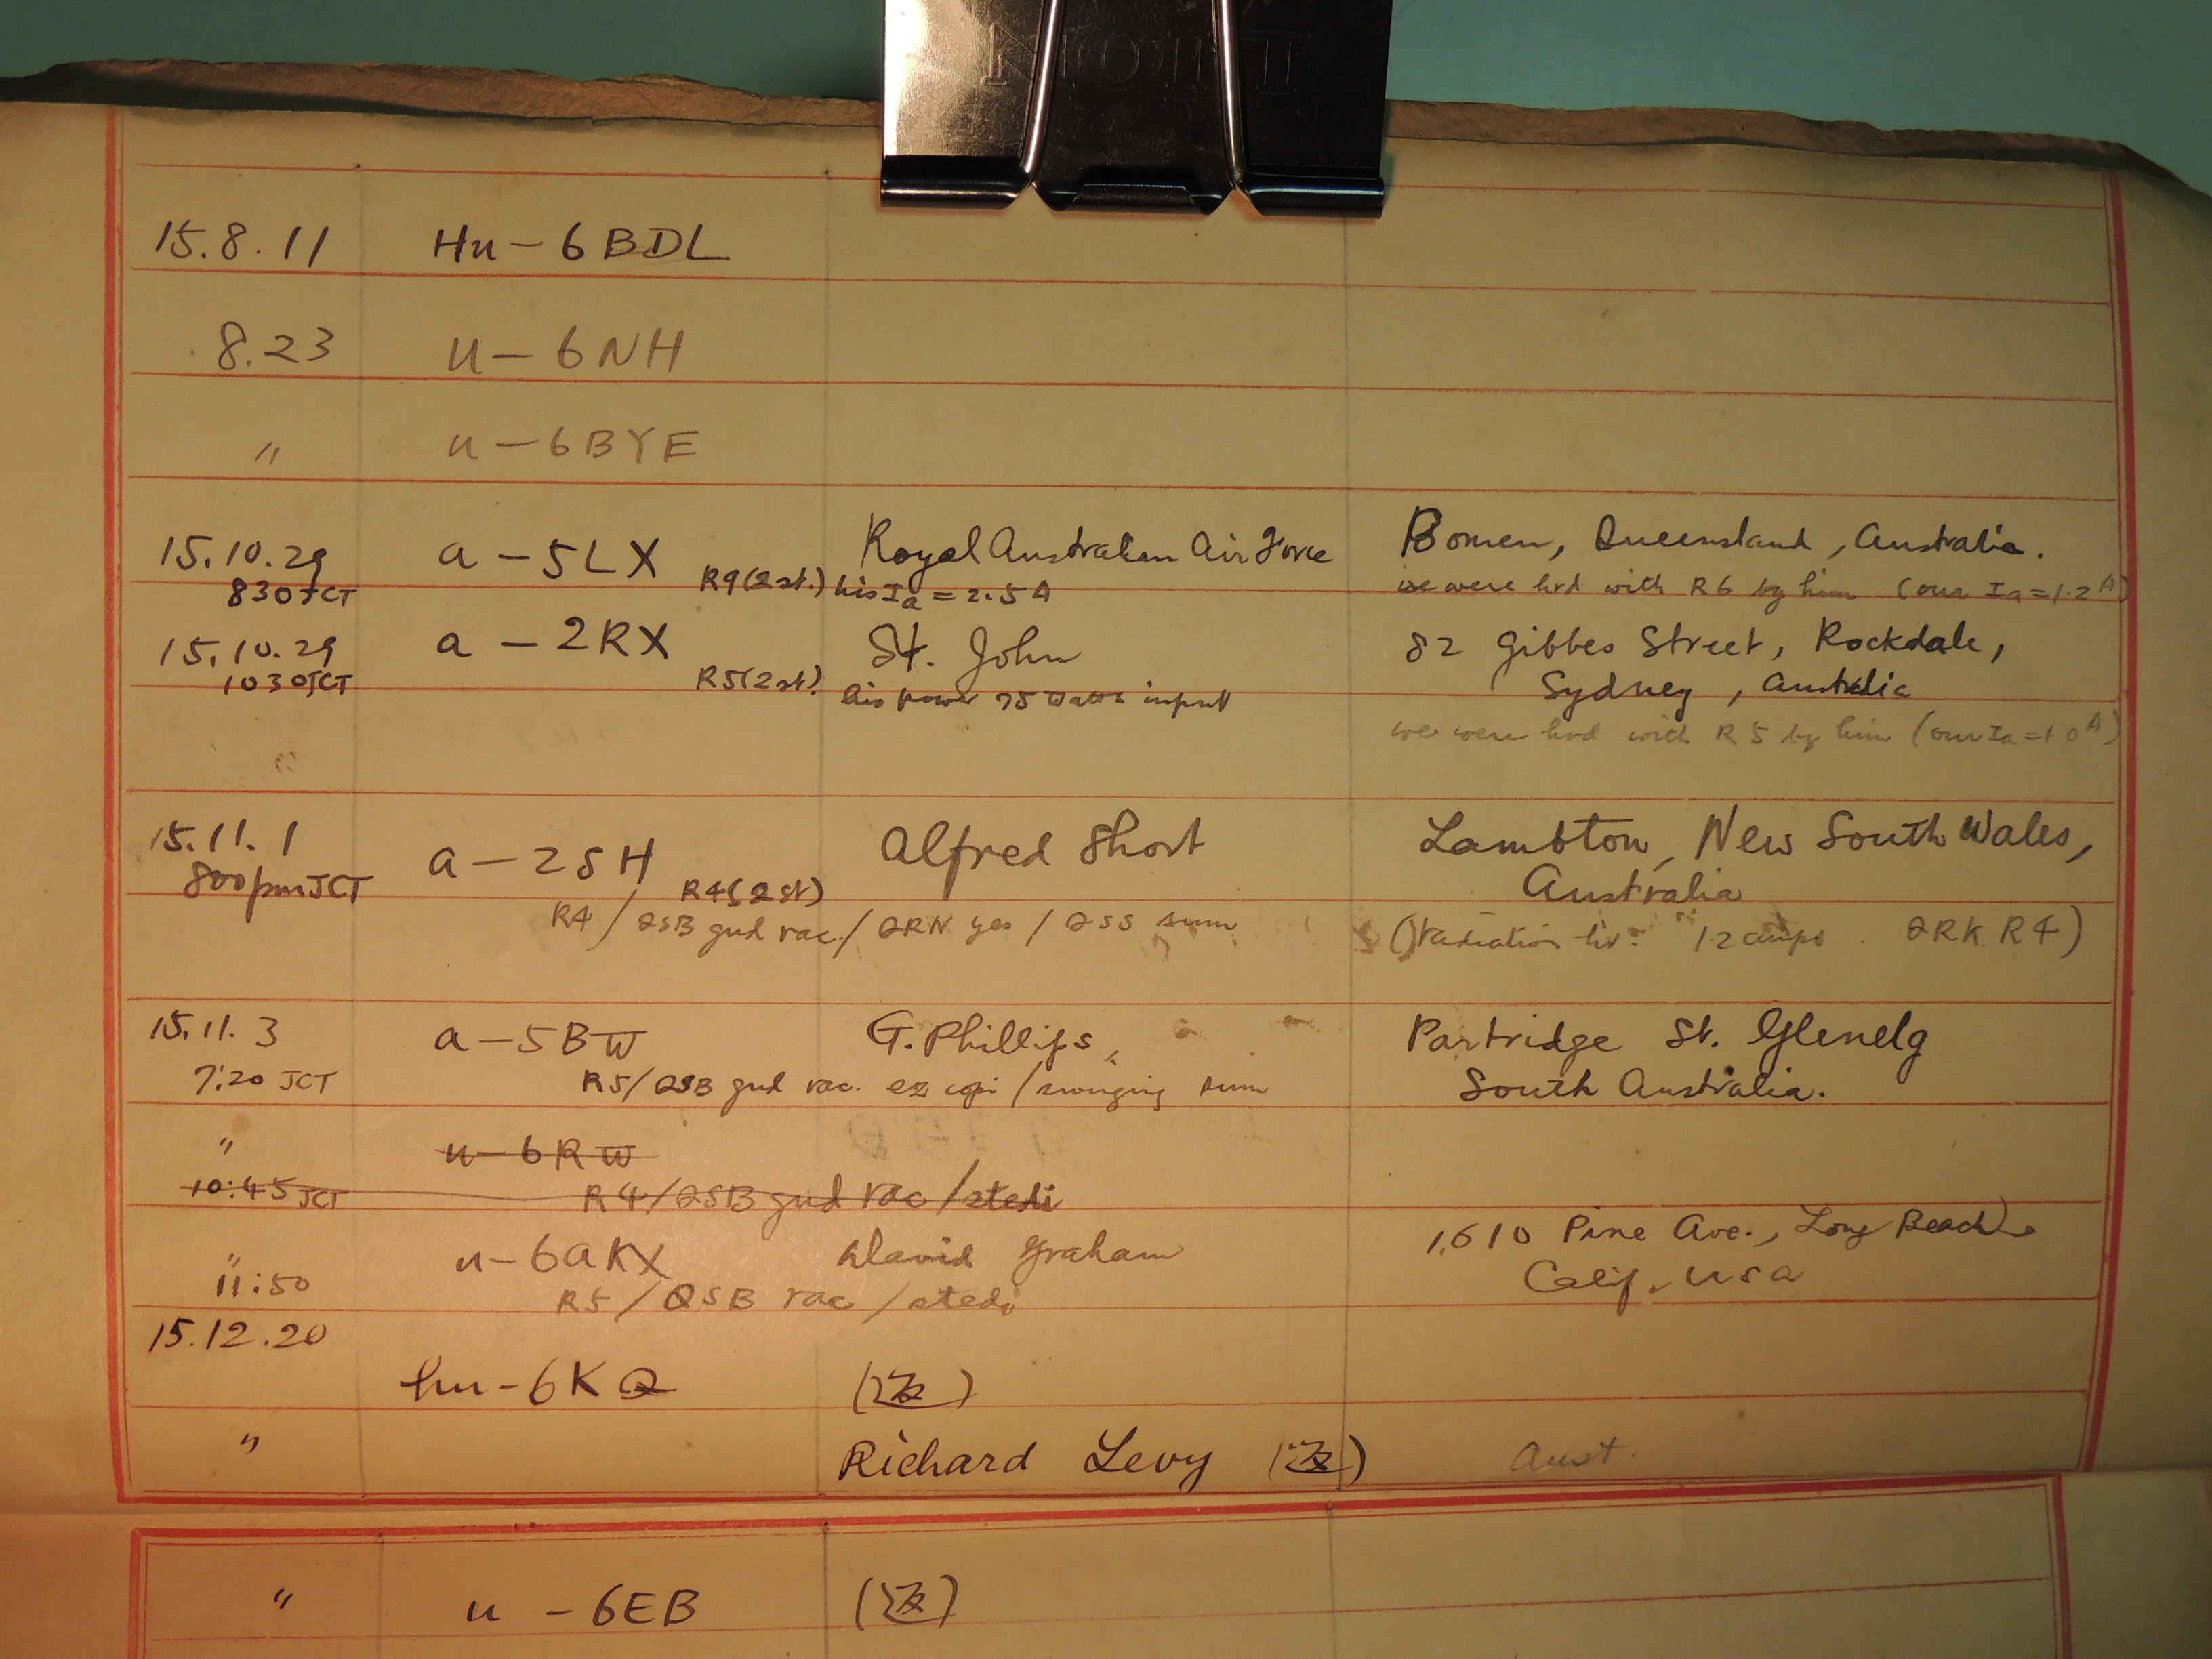 NOIT
15.8.11 Hu-6BDL
8.23 u-6NH
〃 u-6BYE
15.10.29 a-5LX Royal Australian Air Force Bomen, Queensland, Australia.
830JCT R9(2st.) his Ia = 2.5A we were hrd with R6 by him (our Ia=1.2A)
15.10.29 a-2RX St. John 82 Gibbes Street, Rockdale,
1030JCT R5(2st) his power 75 watts input Sydney, Australia
we were hrd with R5 by him (our Ia=1.0A)
15.11.1 a-2SH Alfred Short Lambton, New South Wales,
800pmJCT R4(2st) Australia
R4/QSB gud rac./QRN yes/QSS sum (radiation hr: 1.2 amps. QRK R4)
15.11.3 a-5BW G. Phillips, Partridge St. Glenelg
7:20 JCT R5/QSB gud rac. ez copi/swinging sum South Australia.
〃 u-6RW
10:45 JCT R4/QSB gud rac/stedi
〃 u-6AKX David Graham 1,610 Pine Ave., Long Beach,
11:50 R5/QSB rac/stedi Calif, USA
15.12.20
hu-6KQ (返)
〃 Richard Levy (返) Aust.
〃 u-6EB (返)